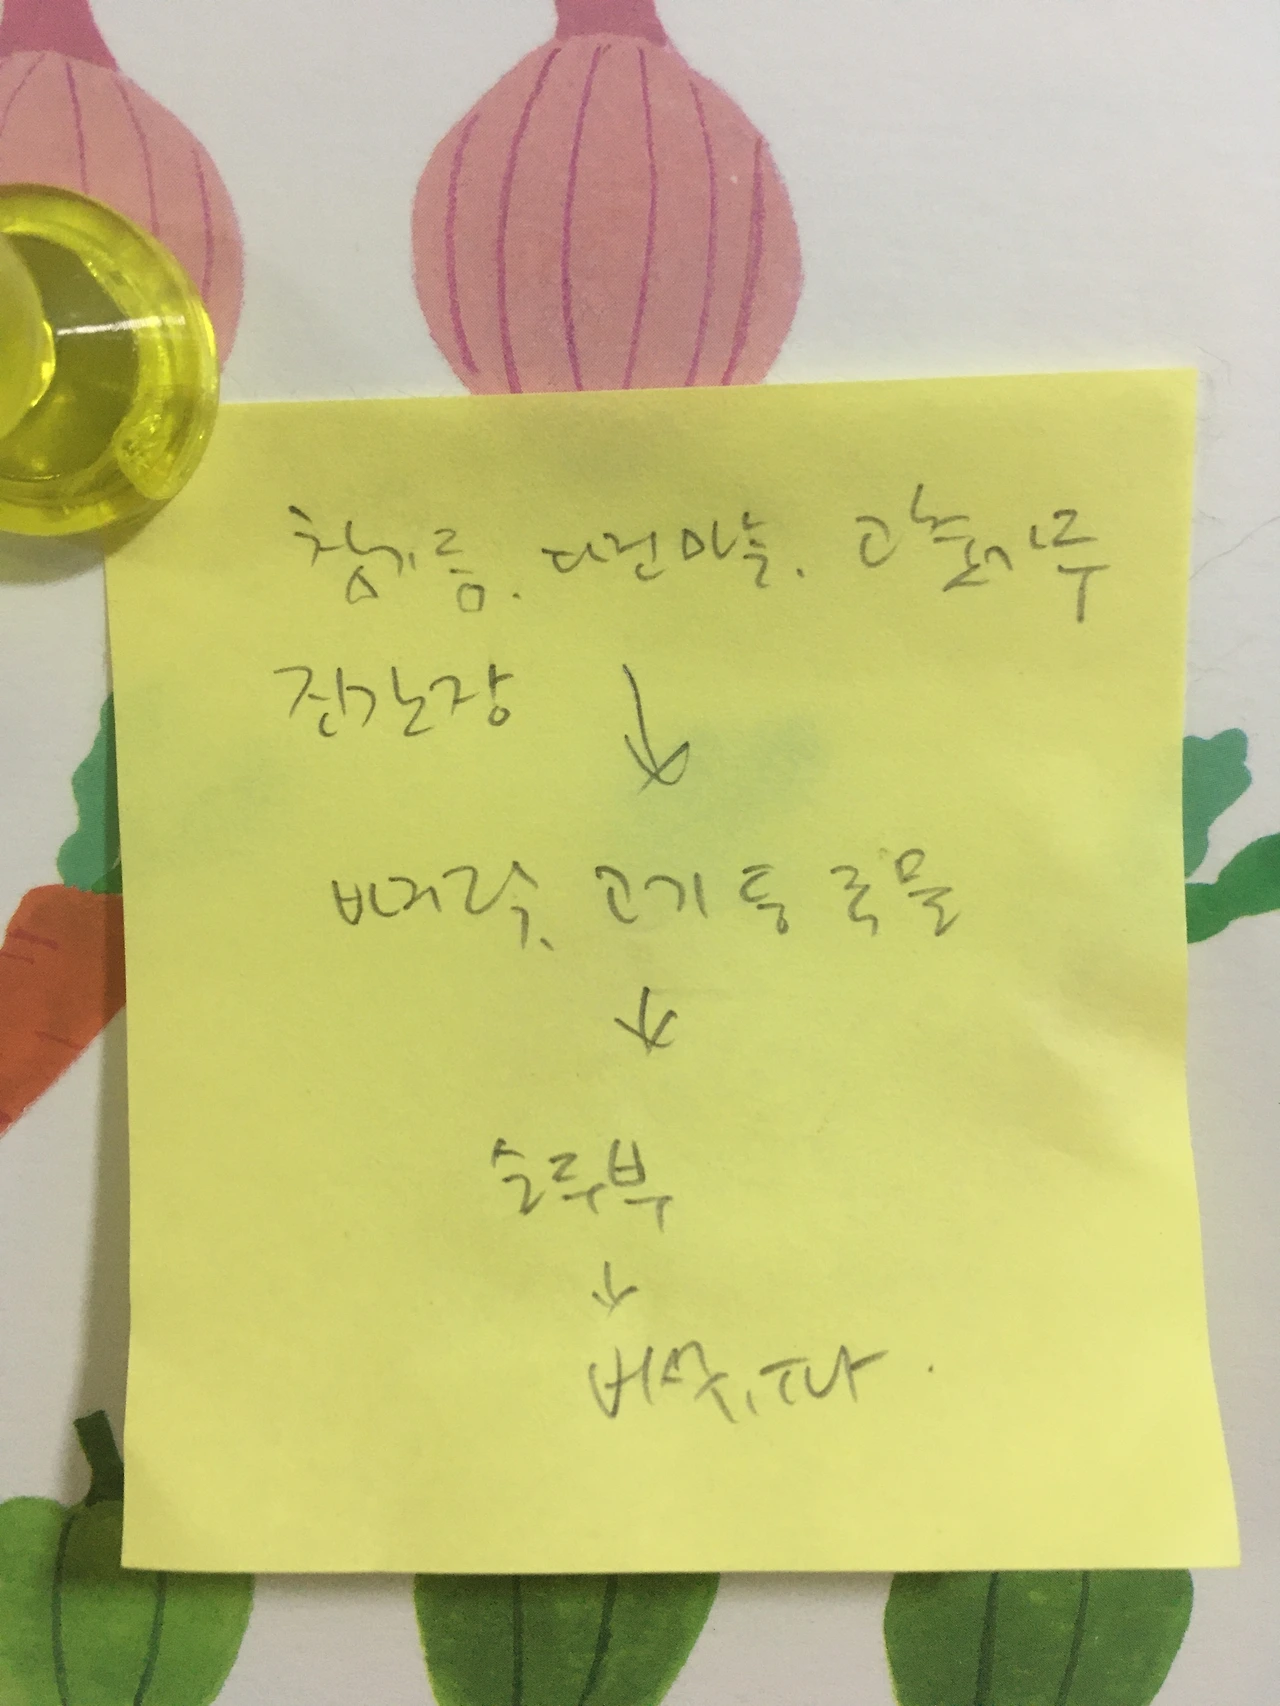 참기름. 다진마늘. 고춧가루
진간장 ↓
바지락, 고기 등 국물
↓
순두부
↓
버섯, 파.